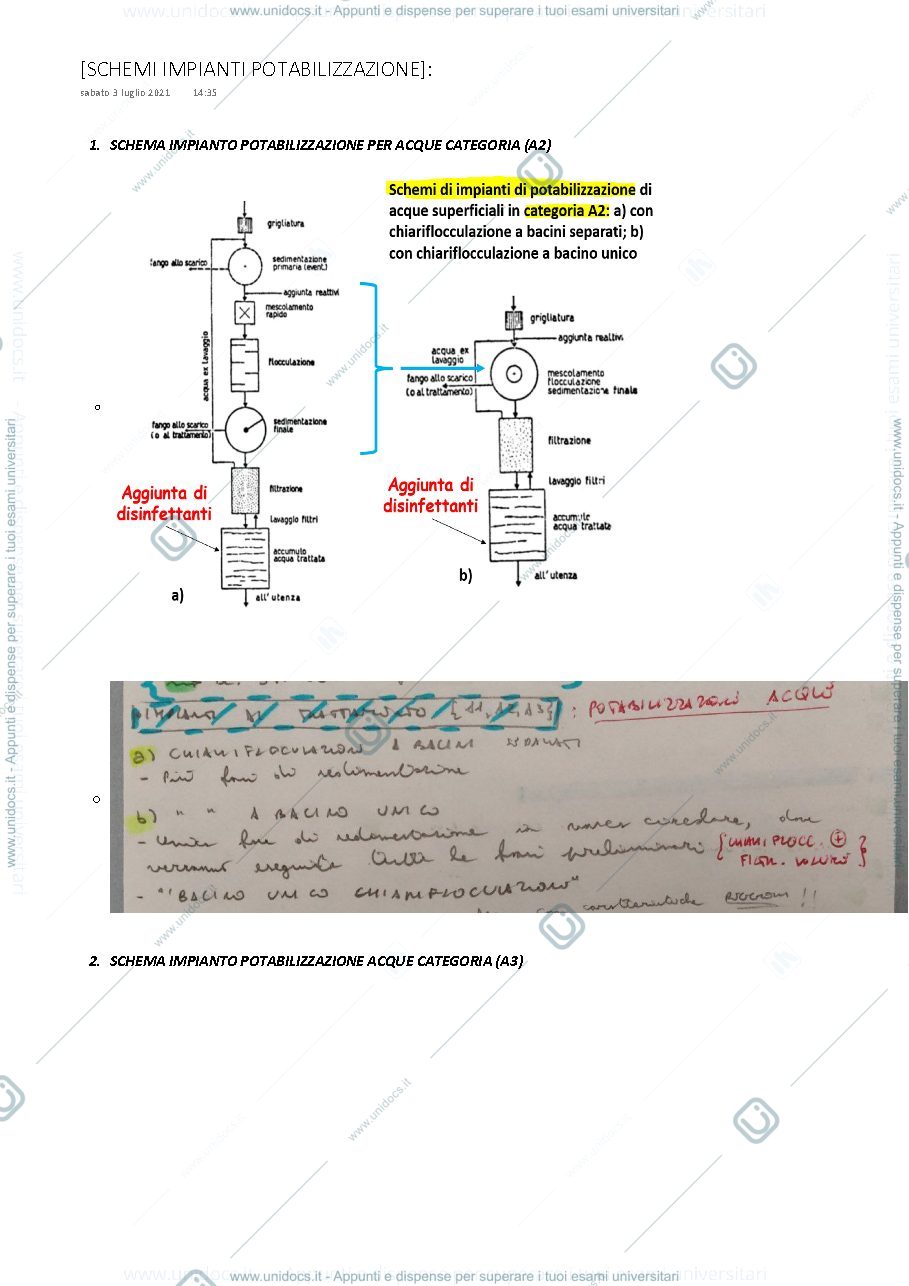 www.unidocs.it - Appunti e dispense per superare i tuoi esami universitari
[SCHEMI IMPIANTI POTABILIZZAZIONE]:
sabato 3 luglio 2021 14:35
1. SCHEMA IMPIANTO POTABILIZZAZIONE PER ACQUE CATEGORIA (A2)
Schemi di impianti di potabilizzazione di
acque superficiali in categoria A2: a) con
chiariflocculazione a bacini separati; b)
con chiariflocculazione a bacino unico
grigliatura
fango allo scarico
sedimentazione
primaria (event.)
aggiunta reattivi
mescolamento
rapido
acqua ex lavaggio
flocculazione
fango allo scarico
(o al trattamento)
sedimentazione
finale
filtrazione
Aggiunta di
disinfettanti
lavaggio filtri
accumulo
acqua trattata
all'utenza
a)
grigliatura
aggiunta reattivi
acqua ex
lavaggio
fango allo scarico
(o al trattamento)
mescolamento
flocculazione
sedimentazione finale
filtrazione
Aggiunta di
disinfettanti
lavaggio filtri
accumulo
acqua trattata
all'utenza
b)
IMPIANTI DI TRATTAMENTO {A1, A2, A3} : POTABILIZZAZIONE ACQUE
a) CHIARIFLOCULAZIONE A BACINI SEPARATI
- Più fasi di sedimentazione
b) " " A BACINO UNICO
- Unica fase di sedimentazione, in vasca circolare, dove
vengono eseguite tutte le fasi preliminari {CHIARIFLOCC. +
- "BACINO UNICO CHIARIFLOCULAZIONE"
caratteristiche !!
2. SCHEMA IMPIANTO POTABILIZZAZIONE ACQUE CATEGORIA (A3)
www.unidocs.it - Appunti e dispense per superare i tuoi esami universitari